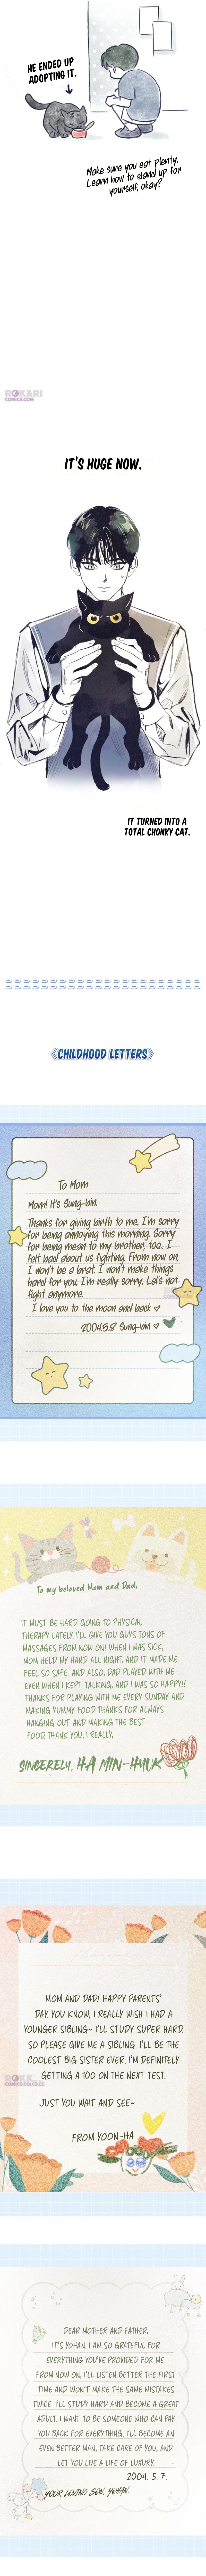 HE ENDED UP
ADOPTING IT.
Make sure you eat plenty.
Learn how to stand up for
yourself, okay?
ROKARI
COMICS.COM
IT'S HUGE NOW.
IT TURNED INTO A
TOTAL CHONKY CAT.
《CHILDHOOD LETTERS》
To Mom
Mom! It's Sung-bin.
Thanks for giving birth to me. I'm sorry
for being annoying this morning. Sorry
for being mean to my brother, too. I
felt bad about us fighting. From now on,
I won't be a brat. I won't make things
hard for you. I'm really sorry. Let's not
fight anymore.
I love you to the moon and back ♡
2004.5.8 Sung-bin
To my beloved Mom and Dad,
IT MUST BE HARD GOING TO PHYSICAL
THERAPY LATELY. I'LL GIVE YOU GUYS TONS OF
MASSAGES FROM NOW ON! WHEN I WAS SICK,
MOM HELD MY HAND ALL NIGHT, AND IT MADE ME
FEEL SO SAFE. AND ALSO, DAD PLAYED WITH ME
EVEN WHEN I KEPT TALKING, AND I WAS SO HAPPY!!
THANKS FOR PLAYING WITH ME EVERY SUNDAY AND
MAKING YUMMY FOOD. THANKS FOR ALWAYS
HANGING OUT AND MAKING THE BEST
FOOD. THANK YOU, I REALLY,
SINCERELY, HA MIN-HYUK
MOM AND DAD! HAPPY PARENTS'
DAY. YOU KNOW, I REALLY WISH I HAD A
YOUNGER SIBLING~ I'LL STUDY SUPER HARD.
SO PLEASE GIVE ME A SIBLING. I'LL BE THE
COOLEST BIG SISTER EVER. I'M DEFINITELY
GETTING A 100 ON THE NEXT TEST.
JUST YOU WAIT AND SEE~
FROM YOON-HA
DEAR MOTHER AND FATHER,
IT'S YOHAN. I AM SO GRATEFUL FOR
EVERYTHING YOU'VE PROVIDED FOR ME.
FROM NOW ON, I'LL LISTEN BETTER THE FIRST
TIME AND WON'T MAKE THE SAME MISTAKES
TWICE. I'LL STUDY HARD AND BECOME A GREAT
ADULT. I WANT TO BE SOMEONE WHO CAN PAY
YOU BACK FOR EVERYTHING. I'LL BECOME AN
EVEN BETTER MAN, TAKE CARE OF YOU, AND
LET YOU LIVE A LIFE OF LUXURY.
2004. 5. 7.
YOUR LOVING SON, YOHAN!